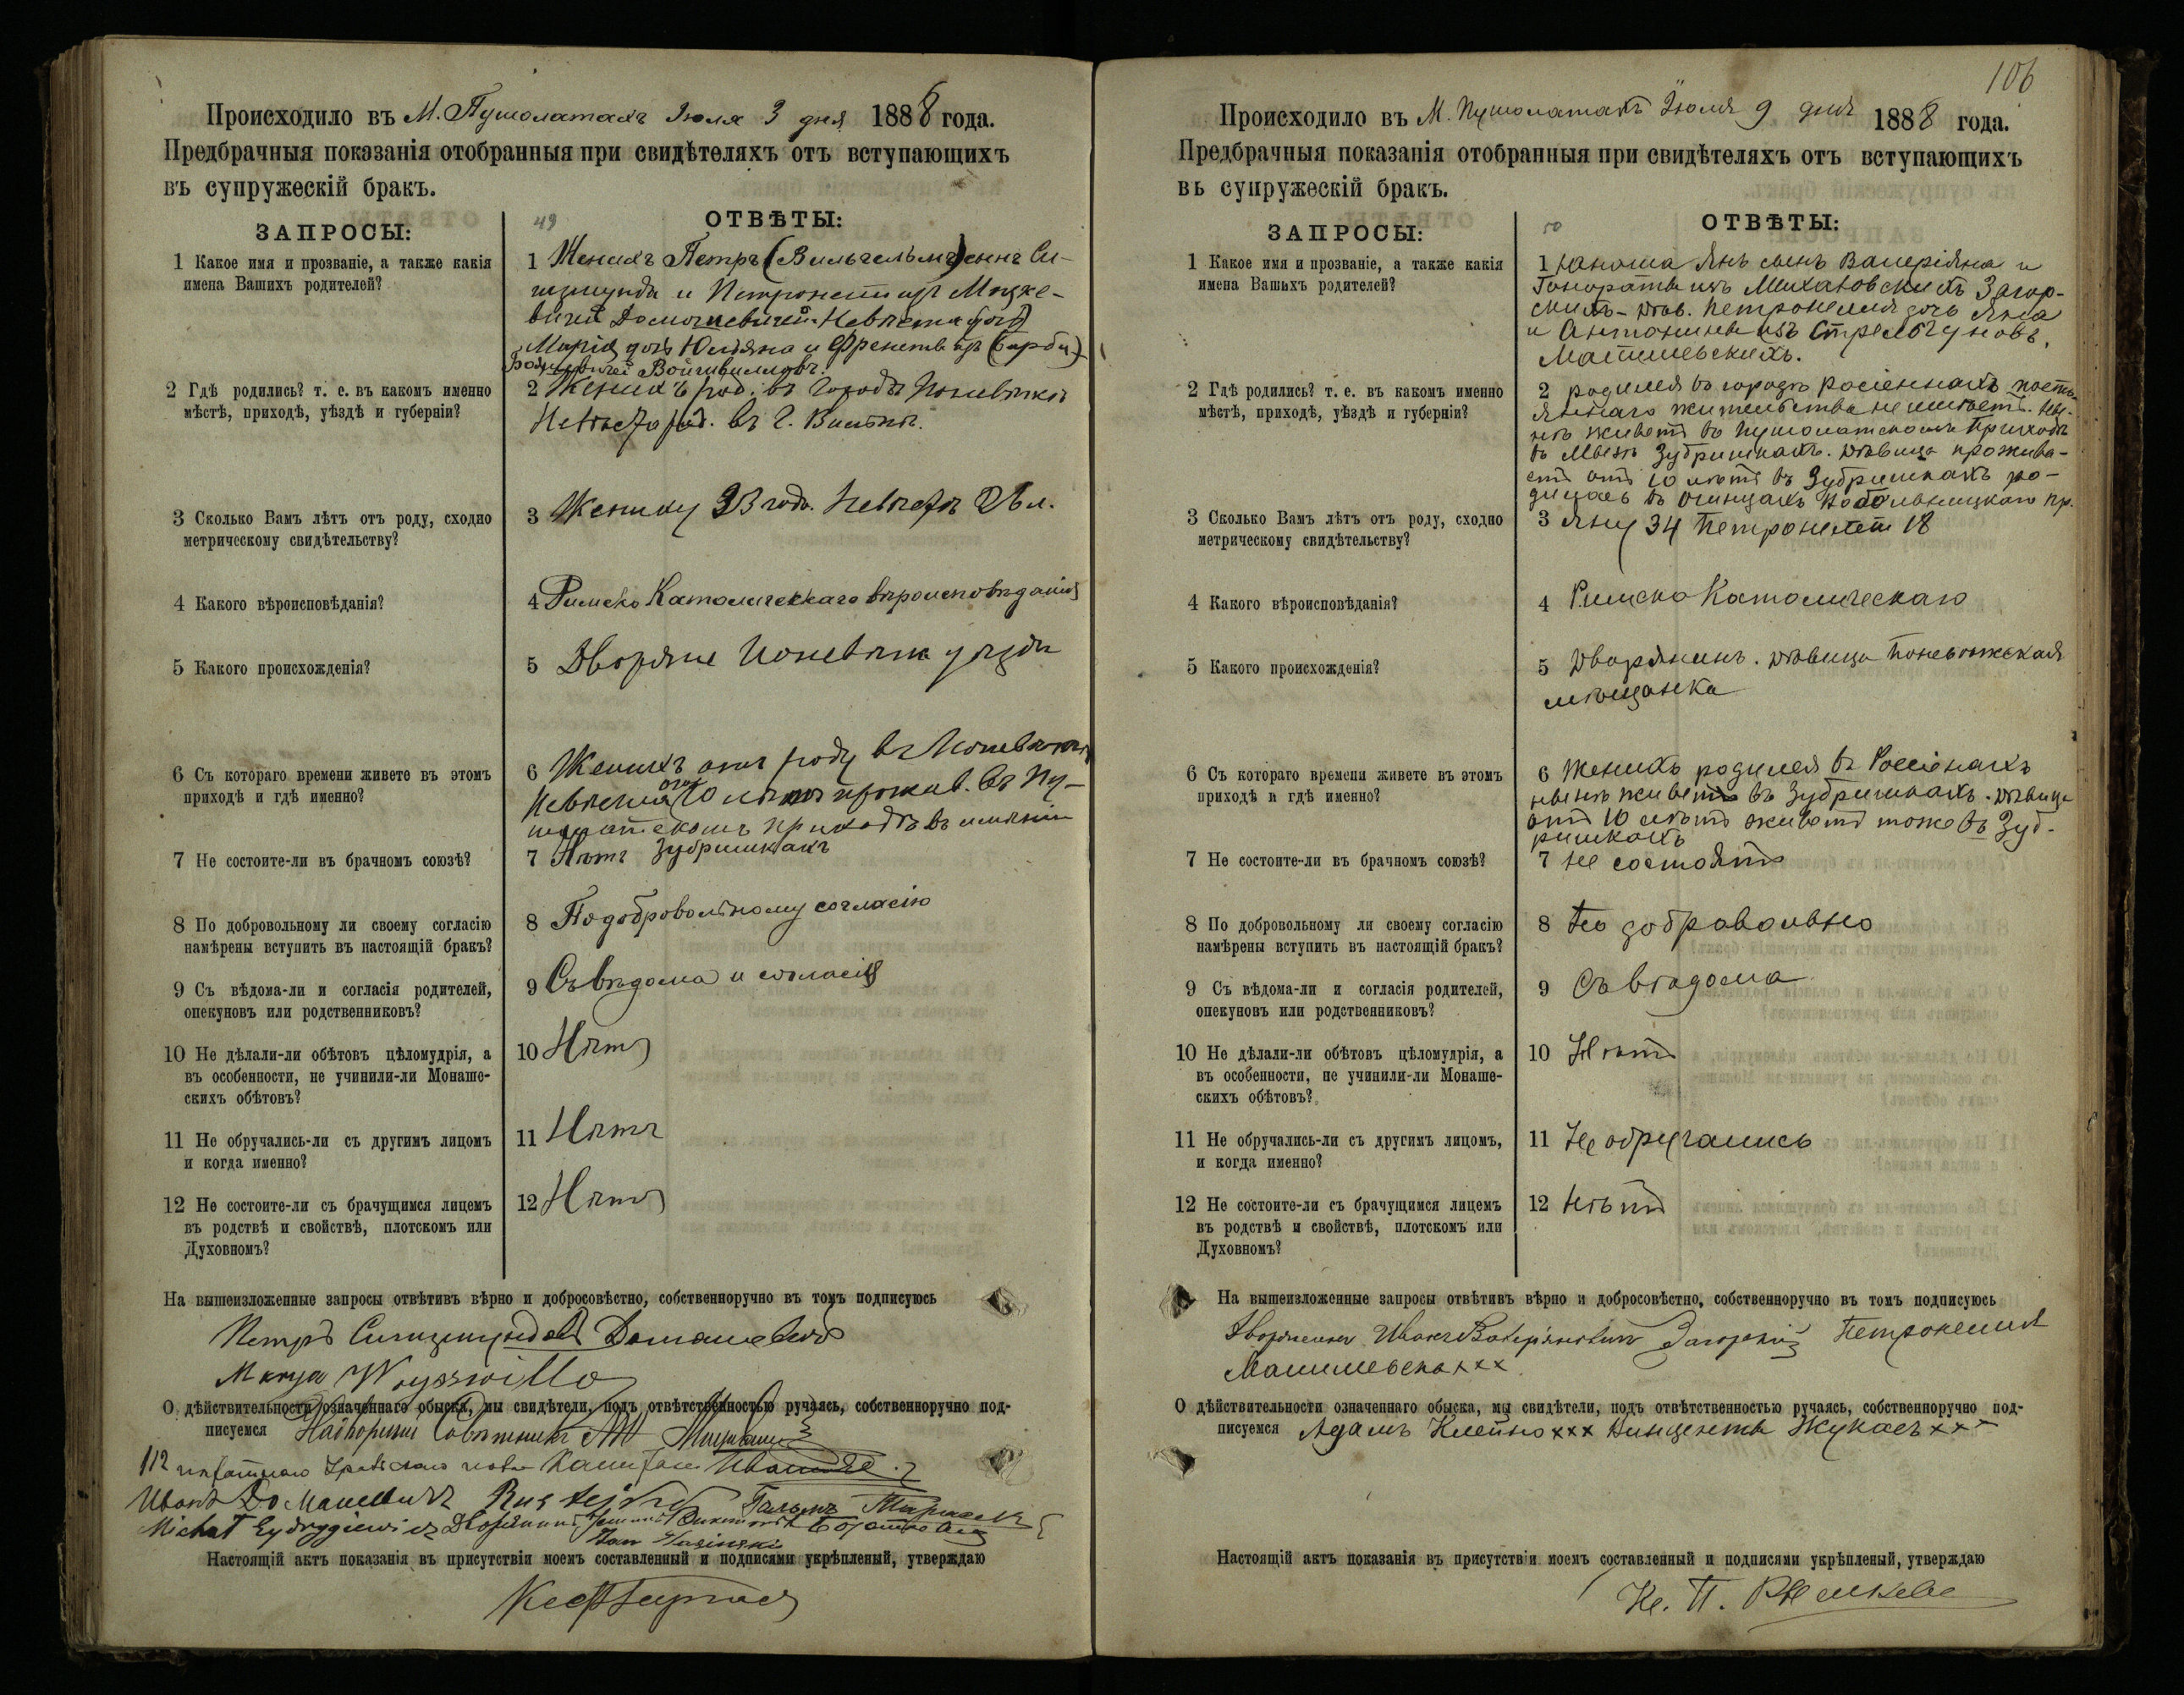 Происходило въ М. Пушолатахъ Іюля 3 дня 1888 года.
Предбрачныя показанія отобранныя при свидѣтеляхъ отъ вступающихъ
въ супружескій бракъ.
ЗАПРОСЫ:
49 ОТВѢТЫ:
1 Какое имя и прозваніе, а также какія
имена Вашихъ родителей?
1 Женихъ Петръ (Вильгельмъ) сынъ Си-
гизмунда и Петронели изъ Мацке-
вичей Домашевичей Невѣста
Марія дочь Юльяна и
Войшвилловъ.
2 Гдѣ родились? т. е. въ какомъ именно
мѣстѣ, приходѣ, уѣздѣ и губерніи?
2 Женихъ род. въ городѣ Поневѣжѣ
Невѣста род. въ г. Вильнѣ.
3 Сколько Вамъ лѣтъ отъ роду, сходно
метрическому свидѣтельству?
3 Жениху 33 года. Невѣстѣ л.
4 Какого вѣроисповѣданія?
4 Римско Католическаго вѣроисповѣданія
5 Какого происхожденія?
5 Дворяне Поневѣж уѣзда
6 Съ котораго времени живете въ этомъ
приходѣ и гдѣ именно?
6 Женихъ отъ роду въ Поневѣжѣ
Невѣста отъ 10 лѣтъ прожив. въ Пу-
шолатскомъ приходѣ въ имѣніи
Зубришкахъ
7 Не состоите-ли въ брачномъ союзѣ?
7 Нѣтъ
8 По добровольному ли своему согласію
намѣрены вступить въ настоящій бракъ?
8 По добровольному согласію
9 Съ вѣдома-ли и согласія родителей,
опекуновъ или родственниковъ?
9 Съ вѣдома и согласія
10 Не дѣлали-ли обѣтовъ цѣломудрія, а
въ особенности, не учинили-ли Монаше-
скихъ обѣтовъ?
10 Нѣтъ
11 Не обручались-ли съ другимъ лицомъ
и когда именно?
11 Нѣтъ
12 Не состоите-ли съ брачущимся лицемъ
въ родствѣ и свойствѣ, плотскомъ или
Духовномъ?
12 Нѣтъ
На вышеизложенные запросы отвѣтивъ вѣрно и добросовѣстно, собственноручно въ томъ подписуюсь
Петръ Сигизмундовъ Домашевичъ
Marya Woyszwiłło
О дѣйствительности означеннаго обыска, мы свидѣтели, подъ отвѣтственностью ручаясь, собственноручно под-
писуемся Надворный Совѣтникъ
112 пѣхотнаго Уральскаго полка Капитанъ
Иванъ Домашевичъ
Michał
Jan
Настоящій актъ показанія въ присутствіи моемъ составленный и подписями укрѣпленый, утверждаю
106
Происходило въ М. Пушолатахъ Іюля 9 дня 1888 года.
Предбрачныя показанія отобранныя при свидѣтеляхъ отъ вступающихъ
въ супружескій бракъ.
ЗАПРОСЫ:
50 ОТВѢТЫ:
1 Какое имя и прозваніе, а также какія
имена Вашихъ родителей?
1 Юноша Янъ сынъ Валеріяна и
Гонораты изъ Михаловскихъ Загор-
скихъ - дѣв. Петронелія дочь Яна
и Антонины изъ Стрелчуновъ
2 Гдѣ родились? т. е. въ какомъ именно
мѣстѣ, приходѣ, уѣздѣ и губерніи?
2 родился въ городѣ Росіеннахъ посто-
яннаго жительства не имѣетъ. Ны-
нѣ живетъ въ Пушолатскомъ Приходѣ
въ Зубришкахъ. Дѣвица прожива-
етъ отъ 10 лѣтъ въ Зубришкахъ ро-
дилась въ пр.
3 Сколько Вамъ лѣтъ отъ роду, сходно
метрическому свидѣтельству?
3 Яну 34 Петронелли 18
4 Какого вѣроисповѣданія?
4 Римско Католическаго
5 Какого происхожденія?
5 Дворянинъ. дѣвица Поневѣжская
мѣщанка
6 Съ котораго времени живете въ этомъ
приходѣ и гдѣ именно?
6 Женихъ родился въ Россіенахъ
нынѣ живетъ въ Зубришкахъ. дѣвица
отъ 10 лѣтъ живетъ тоже въ Зуб-
ришкахъ
7 Не состоите-ли въ брачномъ союзѣ?
7 Не состоятъ
8 По добровольному ли своему согласію
намѣрены вступить въ настоящій бракъ?
8 По добравольно
9 Съ вѣдома-ли и согласія родителей,
опекуновъ или родственниковъ?
9 Съ вѣдома
10 Не дѣлали-ли обѣтовъ цѣломудрія, а
въ особенности, не учинили-ли Монаше-
скихъ обѣтовъ?
10 Нѣтъ
11 Не обручались-ли съ другимъ лицомъ,
и когда именно?
11 Не обручались
12 Не состоите-ли съ брачущимся лицемъ
въ родствѣ и свойствѣ, плотскомъ или
Духовномъ?
12 Нѣтъ
На вышеизложенные запросы отвѣтивъ вѣрно и добросовѣстно, собственноручно въ томъ подписуюсь
Дворянинъ Иванъ Валеріяновичъ Загорскій Петронелия
xxx
О дѣйствительности означеннаго обыска, мы свидѣтели, подъ отвѣтственностью ручаясь, собственноручно под-
писуемся Адамъ Клейно xxx Винцентъ Жукасъ xxx
Настоящій актъ показанія въ присутствіи моемъ составленный и подписями укрѣпленый, утверждаю
Кс. П.